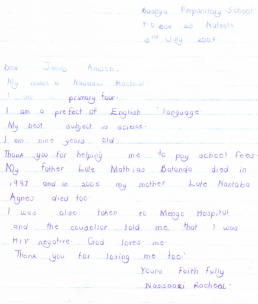 Buagya Preparatory School
P.O Box 20
2007
Dear
My name is Nassaazi Rachael.
I am in primary four.
I am a prefect of English language.
My best subject is science.
I am nine years old.
Thank you for helping me to pay school fees.
My father Late Mathias Batanda died in
1997 and in 2005 my mother Late Nantaba
Agnes died too.
I was also taken to Mengo Hospital
and the told me that I was
HIV negative God loves me.
Thank you for loving me too.
Yours Faith fully
Nassaazi Rachael.